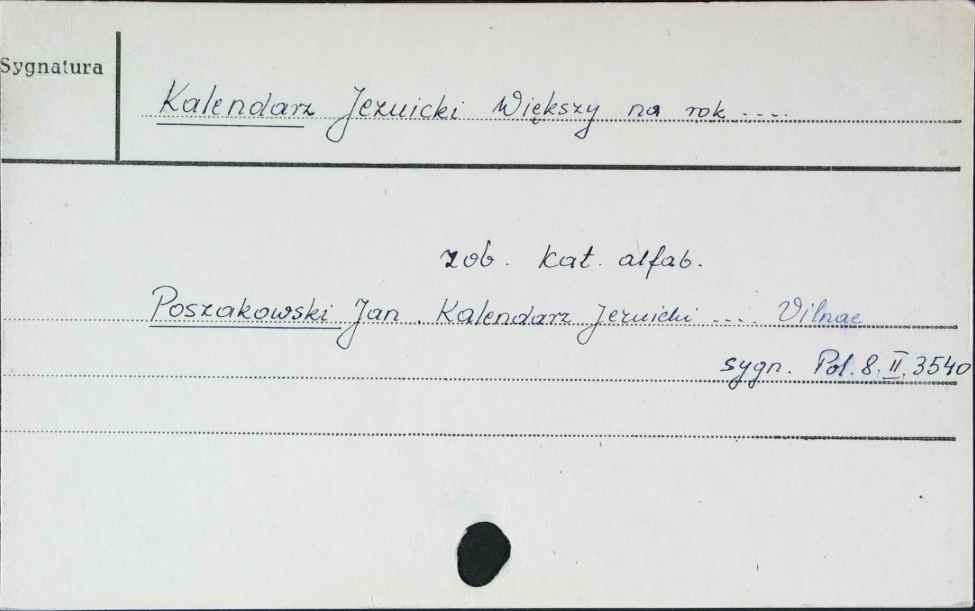 Sygnatura
Kalendarz Jezuicki Większy na rok ....
zob. kat. alfab.
Poszakowski Jan. Kalendarz Jezuicki .... Vilnae
sygn. Pol. 8. II. 3540